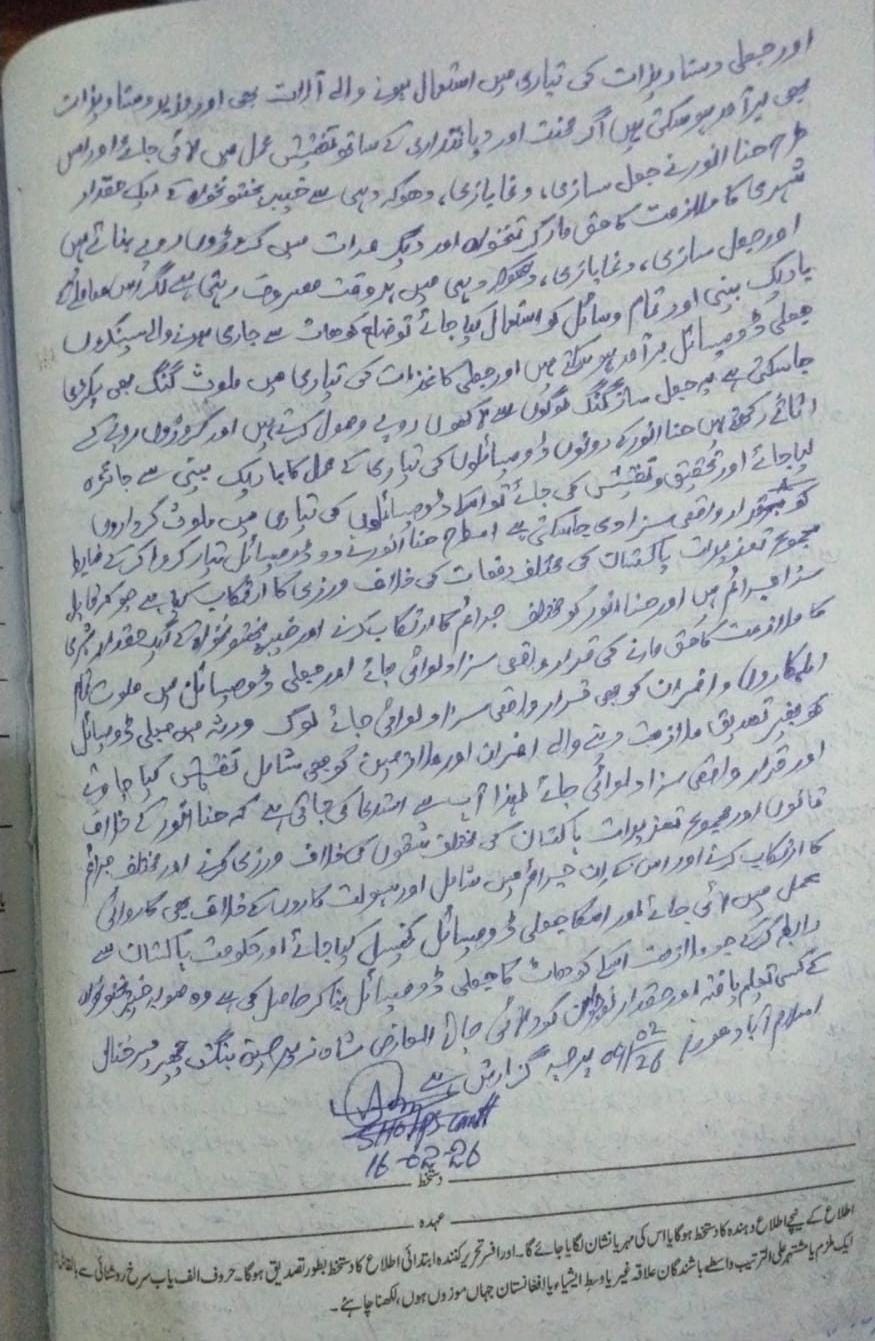 اور جعلی دستاویزات کی تیاری میں استعمال ہونے والے آلات بھی اور مزید دستاویزات
بھی برآمد ہو سکتی ہیں اگر محنت اور دیانتداری کے ساتھ تفتیش عمل میں لائی جائے اور اس
طرح حنا انور نے جعل سازی، دغا بازی، دھوکہ دہی سے خیبر پختونخواہ کے ایک حقدار
شہری کا ملازمت کا حق مار کر تنخواہ اور دیگر مدات میں کروڑوں روپے بنائے ہیں
اور جعل سازی، دغا بازی، دھوکہ دہی میں ہر وقت مصروف رہتی ہے اگر اس معاملے
باریک بینی اور تمام وسائل کو استعمال کیا جائے تو ضلع کوھاٹ سے جاری ہونے والے سینکڑوں
جعلی ڈومیسائل برآمد ہو سکتے ہیں اور جعلی کاغذات کی تیاری میں ملوث گینگ بھی پکڑی
جاسکتی ہے یہ جعل ساز گینگ لوگوں سے لاکھوں روپے وصول کرتے ہیں اور کروڑوں روپے کے
اثاثے رکھتے ہیں حنا انور کے دونوں ڈومیسائلوں کی تیاری کے عمل کا باریک بینی سے جائزہ
لیا جائے اور تحقیق و تفتیش کی جائے تو اسکے ڈومیسائلوں کی تیاری میں ملوث کرداروں
کو قرار واقعی سزا دی جاسکتی ہے اسطرح حنا انور نے دو ڈومیسائل تیار کروا کر کے ضابطہ
مجموعہ تعزیرات پاکستان کی مختلف دفعات کی خلاف ورزی کا ارتکاب کیا ہے جو کہ قابل
سزا جرائم ہیں اور حنا انور کو مختلف جرائم کا ارتکاب کرنے اور خیبر پختونخواہ کے ایک حقدار شہری
کا ملازمت کا حق مارنے کی قرار واقعی سزا دلوائی جائے اور جعلی ڈومیسائل میں ملوث تمام
اہلکاروں و افسران کو بھی قرار واقعی سزا دلوائی جائے لوگ ورثہ میں جعلی ڈومیسائل
کو بغیر تصدیق ملازمت دینے والے افسران اور ملازمین کو بھی شامل تفتیش کیا جاوئے
اور قرار واقعی سزا دلوائی جائے لہذا آپ سے استدعا کی جاتی ہے کہ حنا انور کے خلاف
قانون اور مجموعہ تعزیرات پاکستان کی مختلف شقوں کی خلاف ورزی کرنے اور مختلف جرائم
کا ارتکاب کرنے اور اس کے ان جرائم میں شامل اور سہولت کاروں کے خلاف بھی کاروائی
عمل میں لائی جائے اور اسکا جعلی ڈومیسائل کینسل کیا جائے اور حکومت پاکستان سے
رابطہ کرکے جو ملازمت اسکے کوھاٹ کا جعلی ڈومیسائل بنا کر حاصل کی ہے وہ صوبہ خیبر پختونخواہ
کے کسی تعلیم یافتہ اور حقدار نوجوان کو دلائی جائے العارض شاہ زیب صدیق بنگش
اسلام آباد مورخہ 09/02/26 پرچہ گزارش ہے
SHO PS Cantt
16-02-26
دستخط
عہدہ
اطلاع کے نیچے اطلاع دہندہ کا دستخط ہوگا یا اس کی مہر یا نشان لگایا جائے گا۔ اور افسر تحریر کنندہ ابتدائی اطلاع کا دستخط بطور تصدیق ہوگا۔ حروف الف یا ب سرخ روشنائی سے بالمقابل
ایک ملزم یا مشتہر علی الترتیب واسطے باشندگان علاقہ غیر یا وسط ایشیاء یا افغانستان جہاں موزوں ہوں، لکھنا چاہئے۔